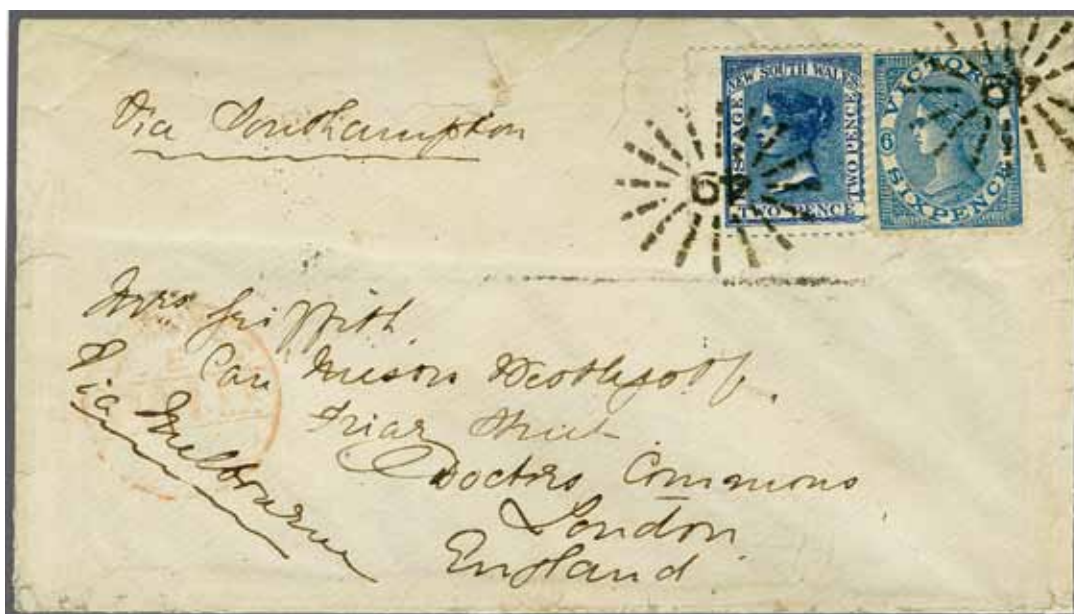 Via Southampton
NEW SOUTH WALES
POSTAGE
TWO PENCE
TWO PENCE
VICTORIA
6
SIXPENCE
64
64
Mrs Griffith
Care Messrs
Friar Street
Doctors Commons
London
England
Via Melbourne